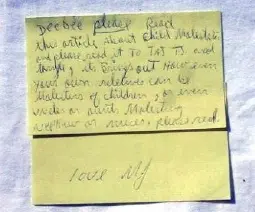 DeeDee please Read
this article about Child Molesters
and please read it to TAJ TJ and
it Brings out How even
your own relatives can be
Molesters of children, or even
uncles or aunts Molesting
nephews or nieces, please read
love MJ